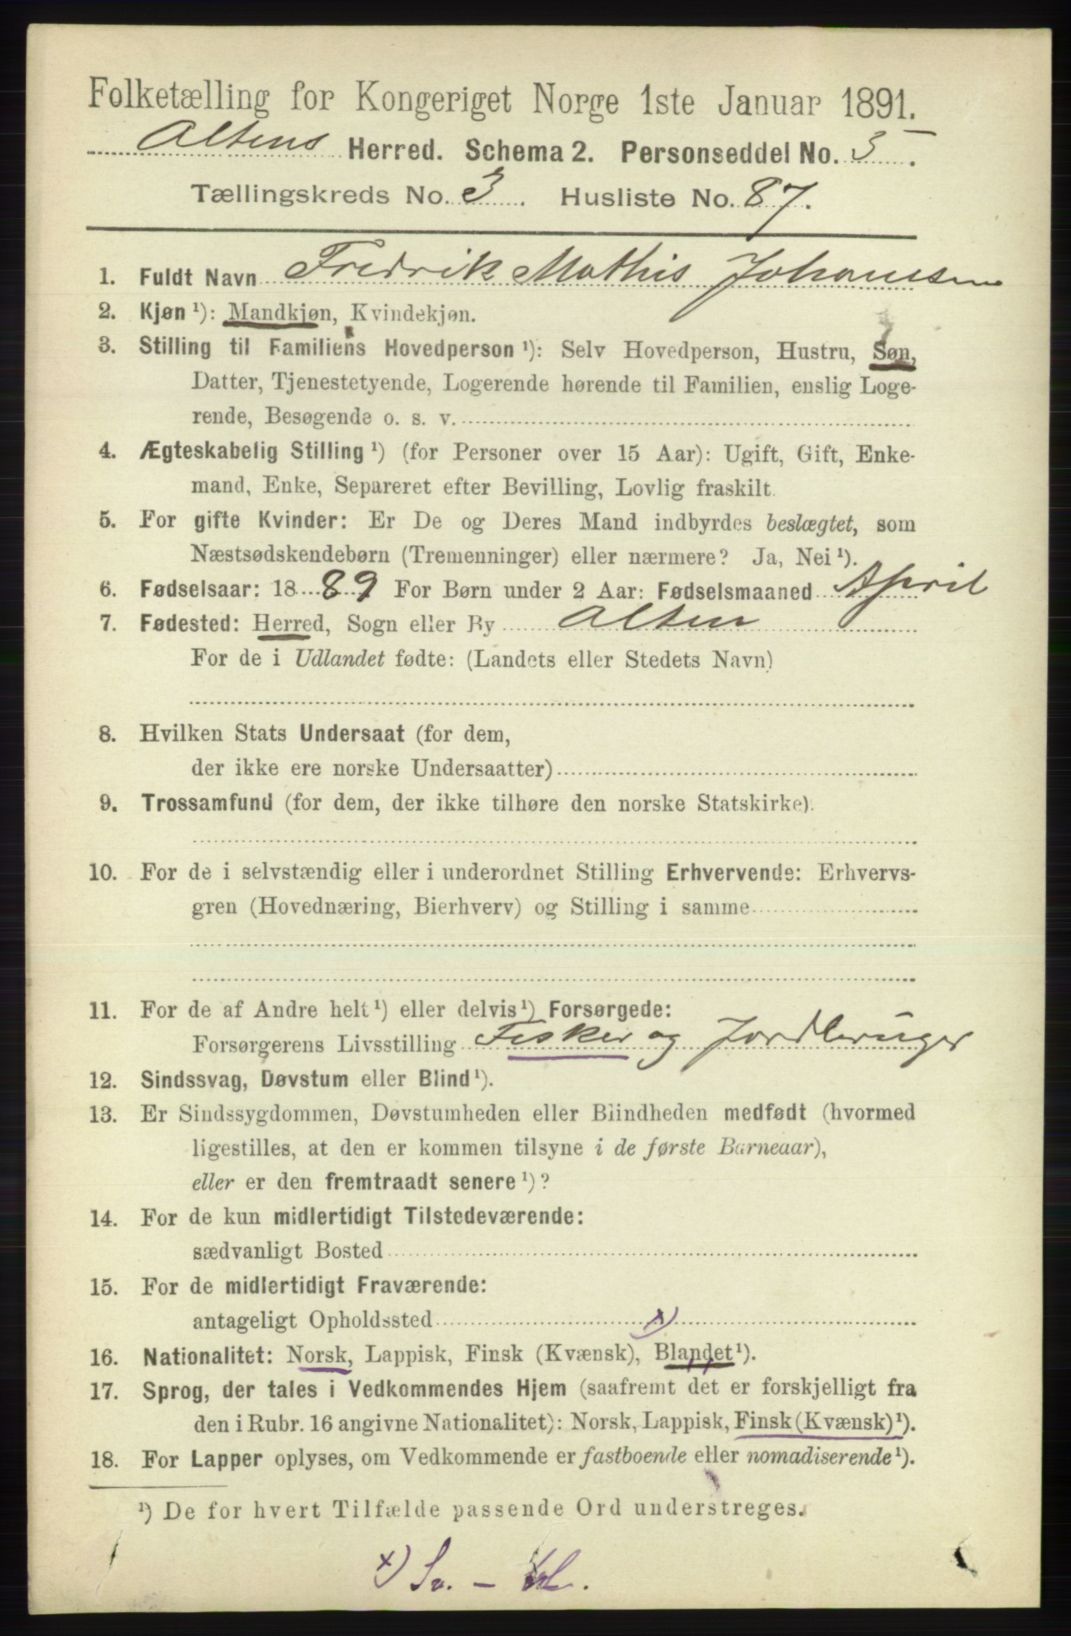 Folketælling for Kongeriget Norge 1ste Januar 1891.
Altens Herred. Schema 2. Personseddel No. 5.
Tællingskreds No. 3. Husliste No. 87.
1. Fuldt Navn Fredrik Mathis Johannsen
2. Kjøn ¹): Mandkjøn, Kvindekjøn.
3. Stilling til Familiens Hovedperson ¹): Selv Hovedperson, Hustru, Søn,
Datter, Tjenestetyende, Logerende hørende til Familien, enslig Loge-
rende, Besøgende o. s. v.
4. Ægteskabelig Stilling ¹) (for Personer over 15 Aar): Ugift, Gift, Enke-
mand, Enke, Separeret efter Bevilling, Lovlig fraskilt.
5. For gifte Kvinder: Er De og Deres Mand indbyrdes beslægtet, som
Næstsødskendebørn (Tremenninger) eller nærmere? Ja, Nei ¹).
6. Fødselsaar: 1889 For Børn under 2 Aar: Fødselsmaaned April
7. Fødested: Herred, Sogn eller By Alten
For de i Udlandet fødte: (Landets eller Stedets Navn)
8. Hvilken Stats Undersaat (for dem,
der ikke ere norske Undersaatter)
9. Trossamfund (for dem, der ikke tilhøre den norske Statskirke).
10. For de i selvstændig eller i underordnet Stilling Erhvervende: Erhvervs-
gren (Hovednæring, Bierhverv) og Stilling i samme
11. For de af Andre helt ¹) eller delvis ¹) Forsørgede:
Forsørgerens Livsstilling Fisker og Jordbruger
12. Sindssvag, Døvstum eller Blind ¹).
13. Er Sindssygdommen, Døvstumheden eller Blindheden medfødt (hvormed
ligestilles, at den er kommen tilsyne i de første Barneaar),
eller er den fremtraadt senere ¹)?
14. For de kun midlertidigt Tilstedeværende:
sædvanligt Bosted
15. For de midlertidigt Fraværende:
antageligt Opholdssted x)
16. Nationalitet: Norsk, Lappisk, Finsk (Kvænsk), Blandet ¹).
17. Sprog, der tales i Vedkommendes Hjem (saafremt det er forskjelligt fra
den i Rubr. 16 angivne Nationalitet): Norsk, Lappisk, Finsk (Kvænsk) ¹).
18. For Lapper oplyses, om Vedkommende er fastboende eller nomadiserende ¹).
¹) De for hvert Tilfælde passende Ord understreges.
x)